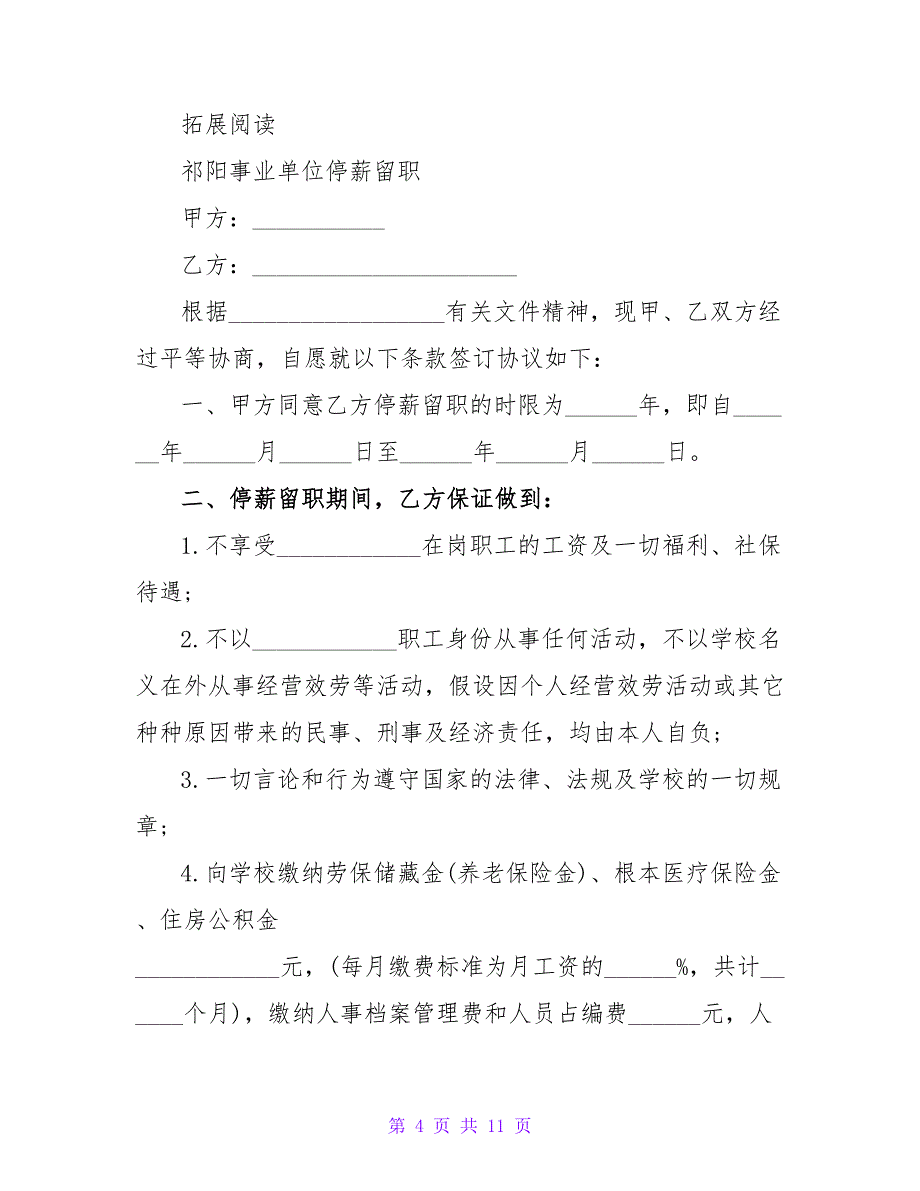 拓展阅读
祁阳事业单位停薪留职
甲方：___________
乙方：______________________
根据__________________有关文件精神，现甲、乙双方经
过平等协商，自愿就以下条款签订协议如下：
一、甲方同意乙方停薪留职的时限为______年，即自____
__年______月______日至______年______月______日。
二、停薪留职期间，乙方保证做到：
1.不享受____________在岗职工的工资及一切福利、社保
待遇;
2.不以____________职工身份从事任何活动，不以学校名
义在外从事经营效劳等活动，假设因个人经营效劳活动或其它
种种原因带来的民事、刑事及经济责任，均由本人自负;
3.一切言论和行为遵守国家的法律、法规及学校的一切规
章;
4.向学校缴纳劳保储藏金(养老保险金)、根本医疗保险金
、住房公积金
____________元，(每月缴费标准为月工资的______%，共计__
____个月)，缴纳人事档案管理费和人员占编费______元，人
第 4 页 共 11 页